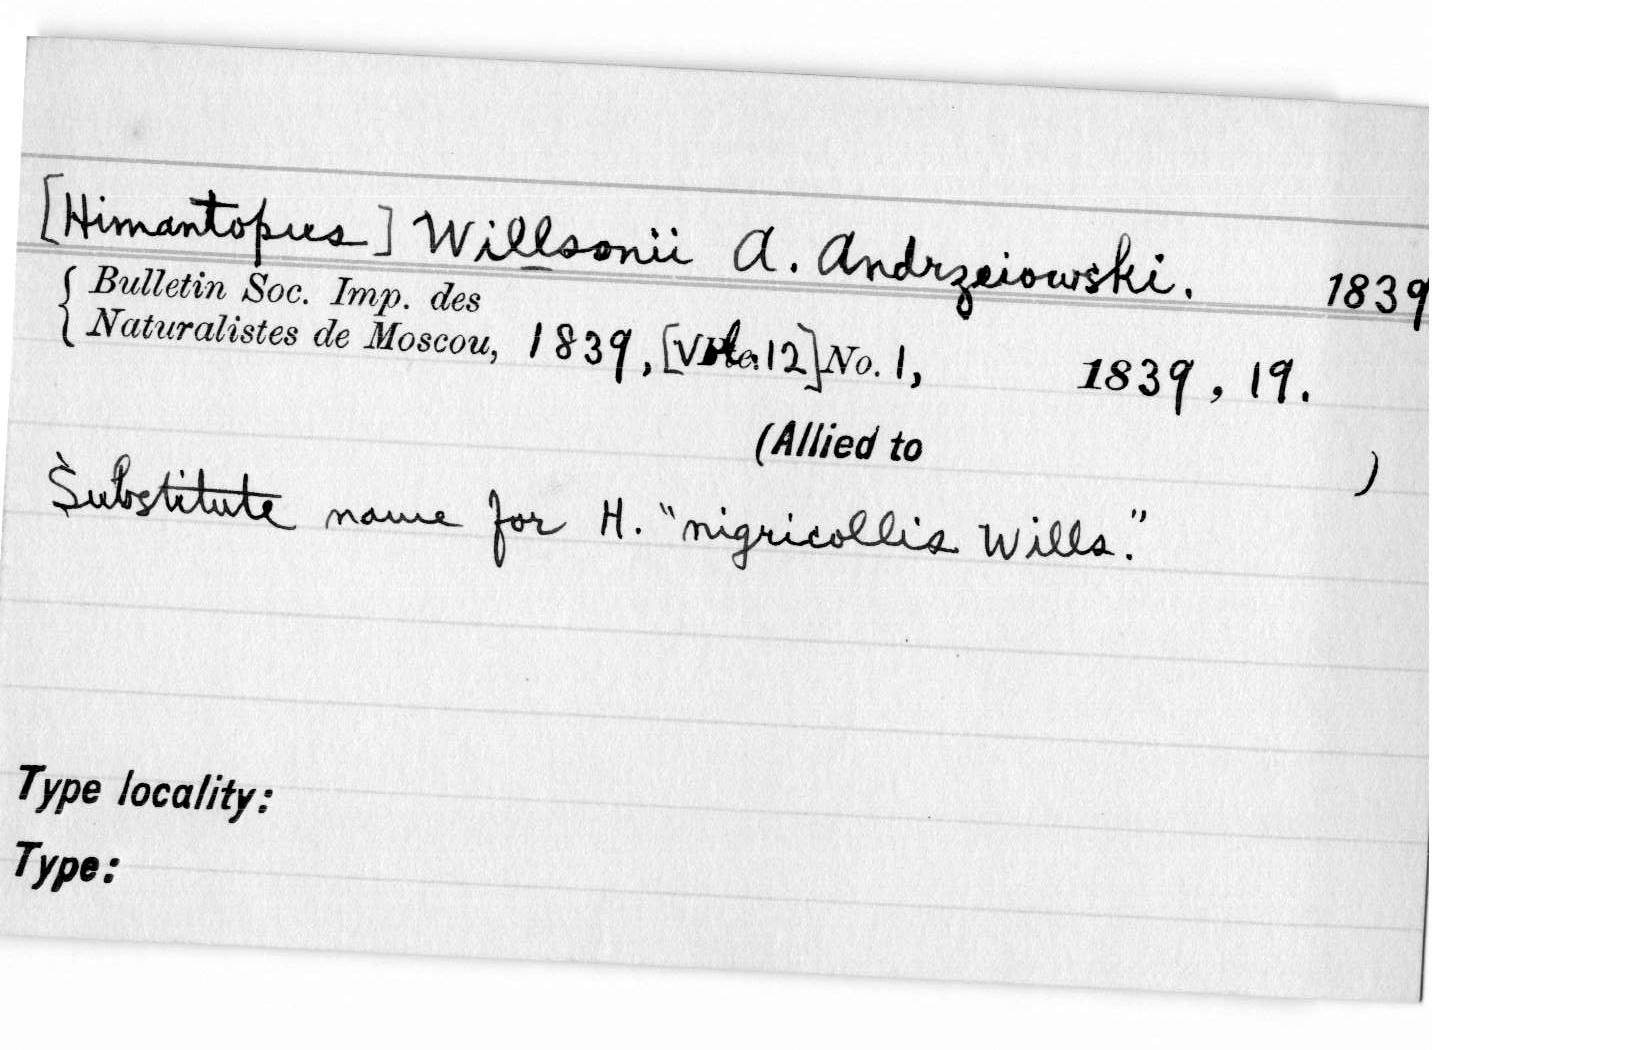 [Himantopus] Willsonii A. Andrzeiowski. 1839
Bulletin Soc. Imp. des
Naturalistes de Moscou, 1839, [Vol. 12] No. 1, 1839, 19.
(Allied to )
Substitute name for H. "nigricollis Wills."
Type locality:
Type: